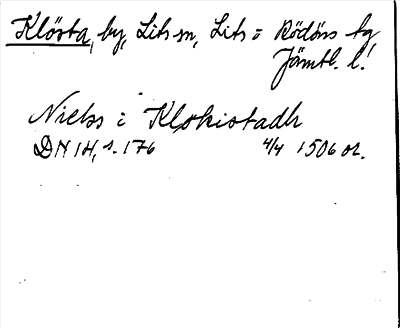 Klösta, by, Lits sn, Lits o Rödöns tg
Jämtl. l.
Nielss i Klokistadh
DN 14, s. 176 4/4 1506 or.